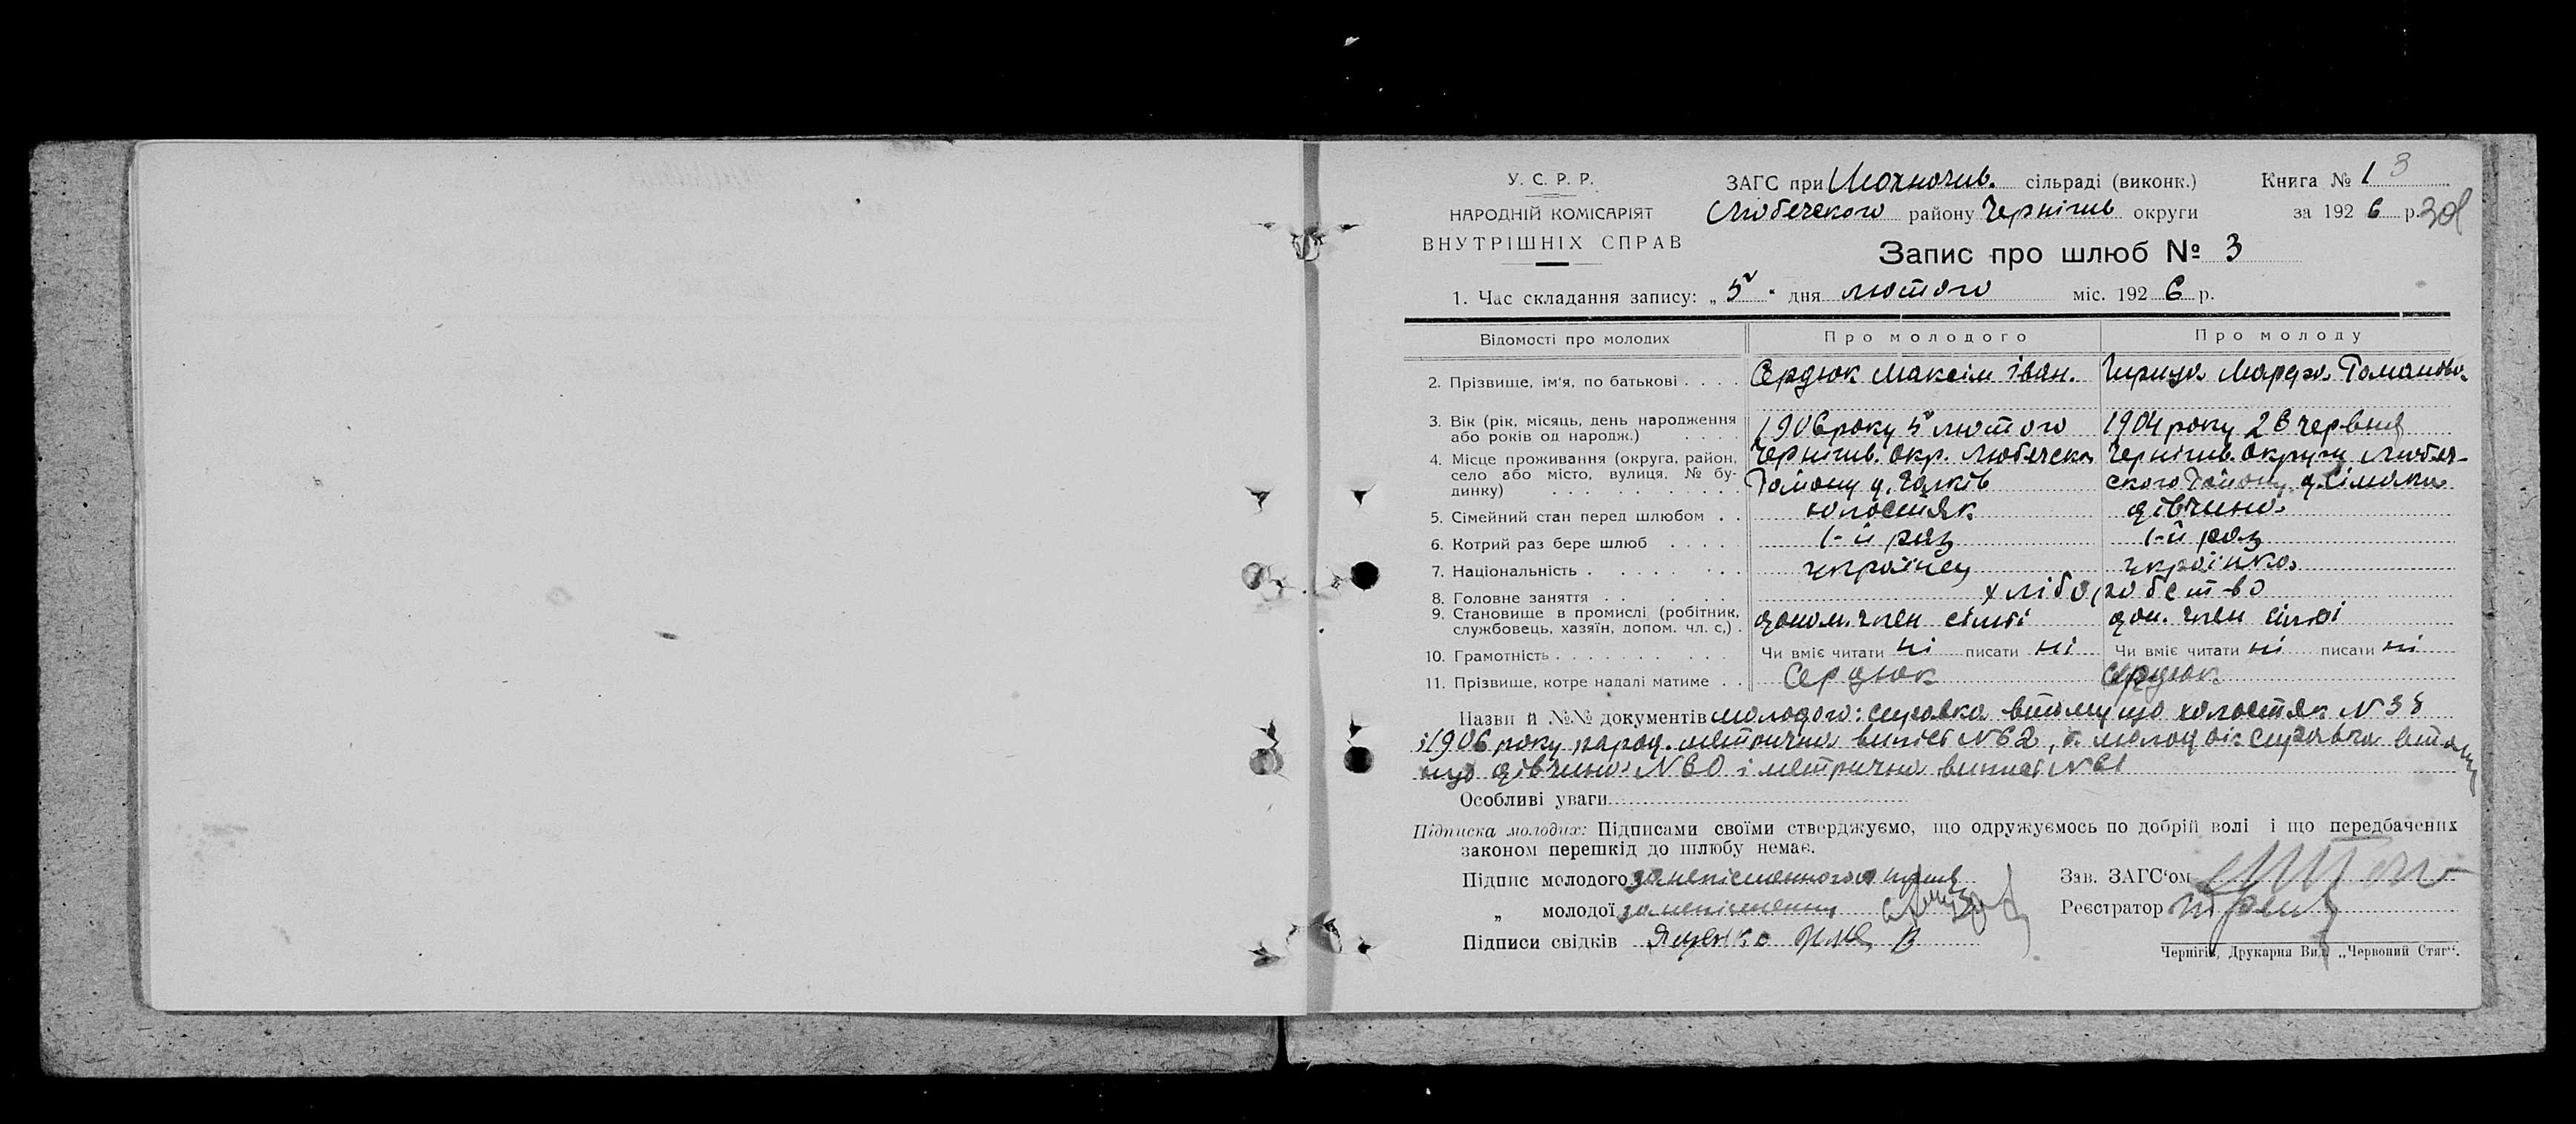 У. С. Р. Р.
НАРОДНІЙ КОМІСАРІЯТ
ВНУТРІШНІХ СПРАВ
ЗАГС при Мохначив. сільраді (виконк.) Книга № 1 3
Любечского району Чернігив округи за 1926 р.
Запис про шлюб № 3
1. Час складання запису: „5" дня лютого міс. 1926 р.
Відомості про молодих Про молодого Про молоду
2. Прізвище, ім'я, по батькові . . . . Сердюк Максім Іван. Марфа Романовна
3. Вік (рік, місяць, день народження 1906 року 5 лютого 1904 року 23 червня
або років од народж.) . . . .
4. Місце проживання (округа, район, Чернігив. окр. Любечско Чернігив. округи Любеч-
село або місто, вулиця, № бу- Району д. Галків ского Району д. Сімаки
динку) . . . . . . . . .
5. Сімейний стан перед шлюбом . . холостяк дівчина
6. Котрий раз бере шлюб . . . . 1-й раз 1-й раз
7. Національність . . . . . . . українец українка
8. Головне заняття . . . . . хліборобство
9. Становище в промислі (робітник, допом. член сімьі доп. член сімьі
службовець, хазяїн, допом. чл. с.) .
10. Грамотність . . . . . . . . . Чи вміє читати ні писати ні Чи вміє читати ні писати ні
11. Прізвище, котре надалі матиме . . Сердюк Сердюк
Назви й №№ документів молодого: справка втому що холостяк N 38
і 1906 року народ. метрична випісь N 62, а молодоі: справка втому
що дівчина N 60 і метрична випись N 61
Особливі уваги
Підписка молодих: Підписами своїми стверджуємо, що одружуємось по добрій волі і що передбачених
законом перешкід до шлюбу немає.
Підпис молодого за непісменного
„ молодої за непісменну
Підписи свідків Яценко
Зав. ЗАГС'ом
Реєстратор
Чернігів, Друкарня Вид. „Червоний Стяг".